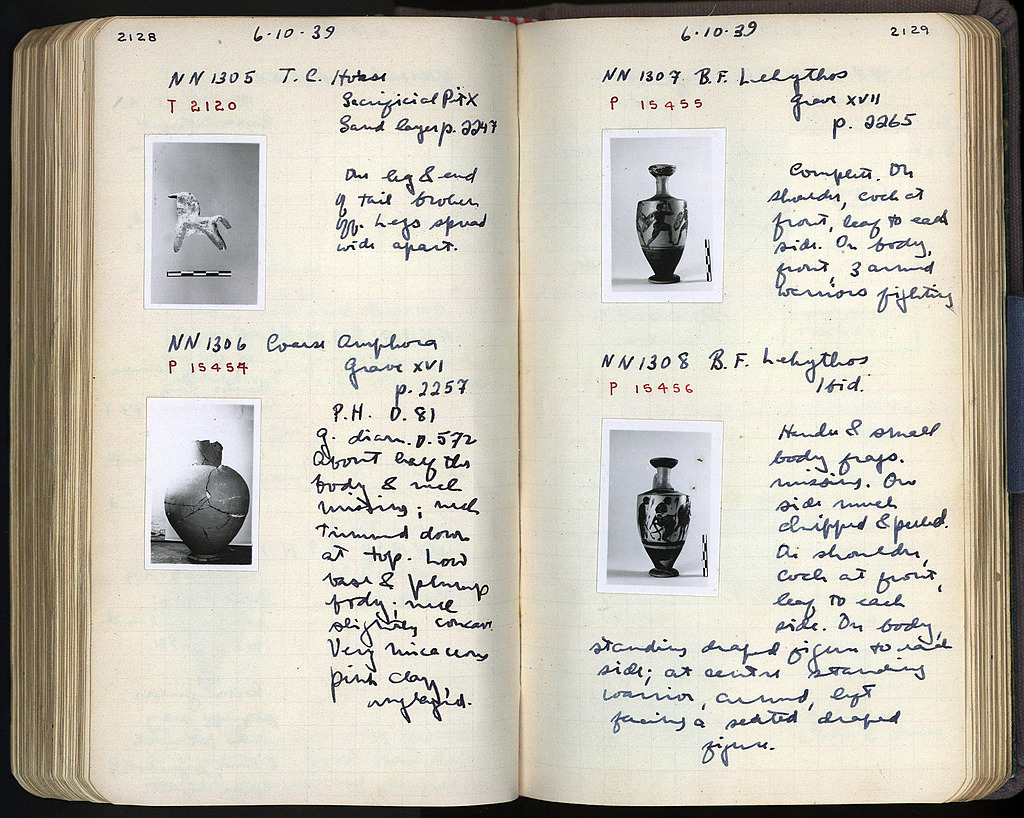 2128
6·10·39
NN 1305 T.C. Horse
T 2120
Sacrificial Pit X
Sand layer p. 2247
One leg & end
of tail broken
off. Legs spread
wide apart.
NN 1306 Coarse Amphora
P 15454
Grave XVI
p. 2257
P.H. 0.81
g. diam. 0.572
About half the
body & neck
missing; neck
trimmed down
at top. Low
base & plump
body; neck
slightly concave.
Very micaceous
pink clay,
unglazed.
2129
6·10·39
NN 1307 B.F. Lekythos
P 15455
Grave XVII
p. 2265
Complete. On
shoulder, cock at
front, leaf to each
side. On body,
front, 3 armed
warriors fighting
NN 1308 B.F. Lekythos
P 15456
Ibid.
Handle & small
body frags.
missing. One
side much
chipped & peeled.
On shoulder,
cock at front,
leaf to each
side. On body,
standing draped figure to each
side; at centre standing
warrior, armed, left
facing a seated draped
figure.